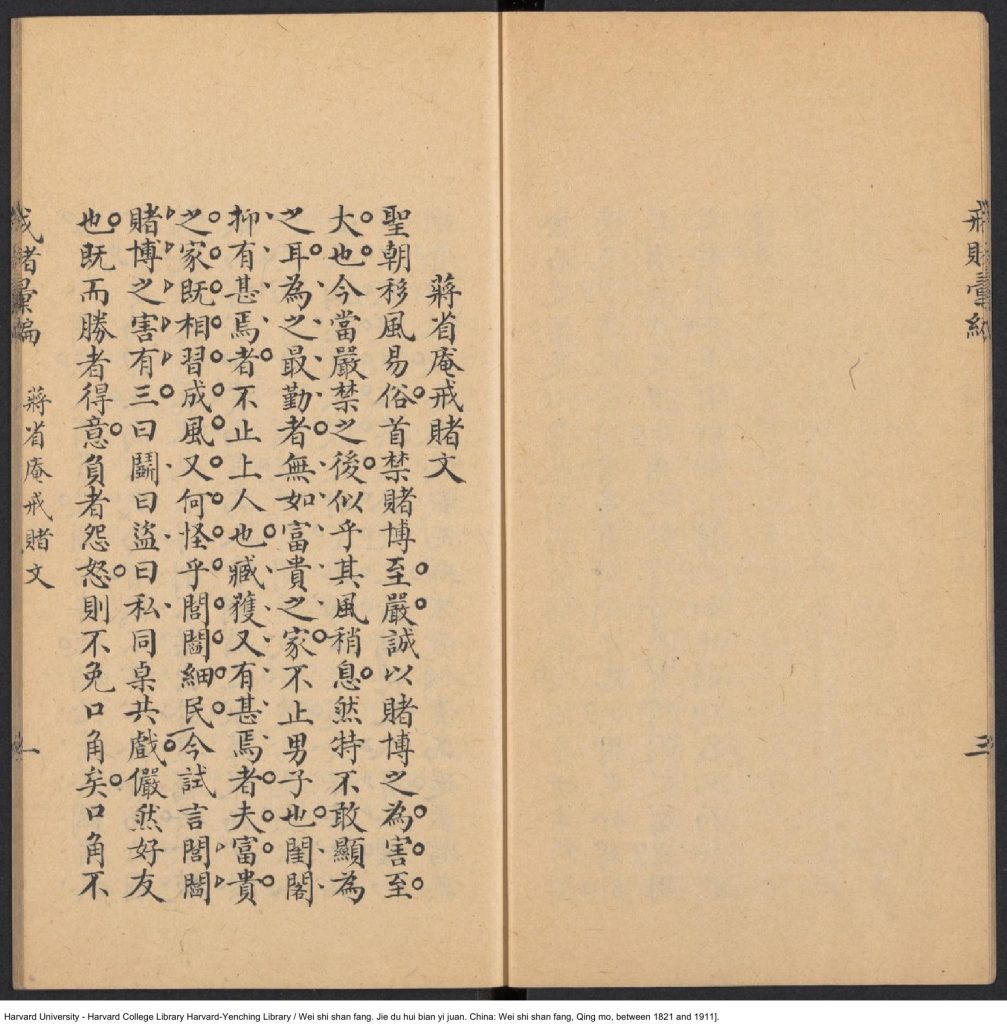 戒賭彙編
三
蔣省庵戒賭文
聖朝移風易俗首禁賭博至嚴誠以賭博之為害至
大也今當嚴禁之後似乎其風稍息然特不敢顯為
之耳為之最勤者無如富貴之家不止男子也閨閣
抑有甚焉者不止上人也臧獲又有甚焉者夫富貴
之家既相習成風又何怪乎閭閻細民今試言閭閻
賭博之害有三曰鬪曰盜曰私同桌共戲儼然好友
也既而勝者得意負者怨怒則不免口角矣口角不
戒賭彙編 蔣省庵戒賭文 一
Harvard University - Harvard College Library Harvard-Yenching Library / Wei shi shan fang. Jie du hui bian yi juan. China: Wei shi shan fang, Qing mo, between 1821 and 1911].